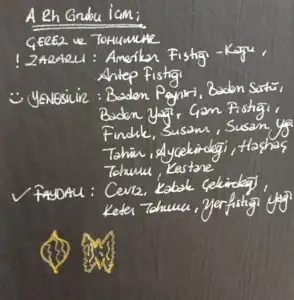 A Rh Grubu İçin;
GEREZ ve TOHUMLAR
! ZARARLI : Amerikan Fıstığı - Kaju,
Antep Fıstığı
YENEBİLİR : Badem Peyniri, Badem Sütü,
Badem Yağı, Çam Fıstığı,
Fındık, Susam, Susam Yağı
Tahin, Ayçekirdeği, Haşhaş
Tohumu, Kestane
✓ FAYDALI : Ceviz, Kabak Çekirdeği,
Keten Tohumu, Yerfıstığı Yağı